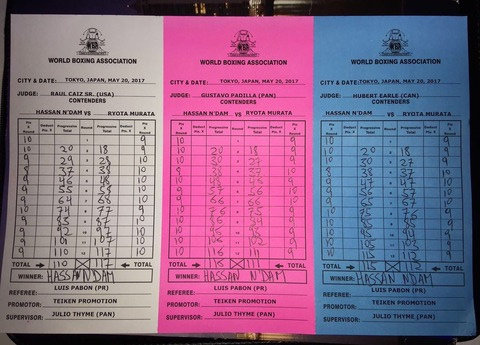 WORLD BOXING ASSOCIATION
CITY & DATE: TOKYO, JAPAN, MAY 20, 2017
JUDGE: RAUL CAIZ SR. (USA)
CONTENDERS
HASSAN N'DAM VS RYOTA MURATA
Pts X Round Deduct Pts. X Progressive Total Round Progressive Total Deduct Pts. X Pts X Round
10 9
10 20 18 9
9 29 28 10
8 37 38 10
9 46 48 10
9 55 58 10
9 64 68 10
10 74 77 9
9 83 87 10
9 92 97 10
9 101 107 10
9 110 117 10
TOTAL 110 117 TOTAL
WINNER: HASSAN N'DAM
REFEREE: LUIS PABON (PR)
PROMOTOR: TEIKEN PROMOTION
SUPERVISOR: JULIO THYME (PAN)
WORLD BOXING ASSOCIATION
CITY & DATE: TOKYO, JAPAN, MAY 20, 2017
JUDGE: GUSTAVO PADILLA (PAN)
CONTENDERS
HASSAN N'DAM VS RYOTA MURATA
Pts X Round Deduct Pts. X Progressive Total Round Progressive Total Deduct Pts. X Pts X Round
10 9
10 20 18 9
10 30 27 9
38 37 10
47
57 56
66 66
76 75
86
95
106 102
116 111
TOTAL 111 TOTAL
WINNER: HASSAN N'DAM
REFEREE: LUIS PABON (PR)
PROMOTOR: TEIKEN PROMOTION
SUPERVISOR: JULIO THYME (PAN)
WORLD BOXING ASSOCIATION
CITY & DATE: TOKYO, JAPAN, MAY 20, 2017
JUDGE: HUBERT EARLE (CAN)
CONTENDERS
HASSAN N'DAM VS RYOTA MURATA
Pts X Round Deduct Pts. X Progressive Total Round Progressive Total Deduct Pts. X Pts X Round
10 9
10 20 18 9
10 30 27 9
8 38 37 10
9 47 47 10
9 56 57 10
9 65 67 10
10 75 76 9
10 85
95
10 105 103
10 115 112 9
TOTAL 115 112 TOTAL
WINNER: HASSAN N'DAM
REFEREE: LUIS PABON (PR)
PROMOTOR: TEIKEN PROMOTION
SUPERVISOR: JULIO THYME (PAN)